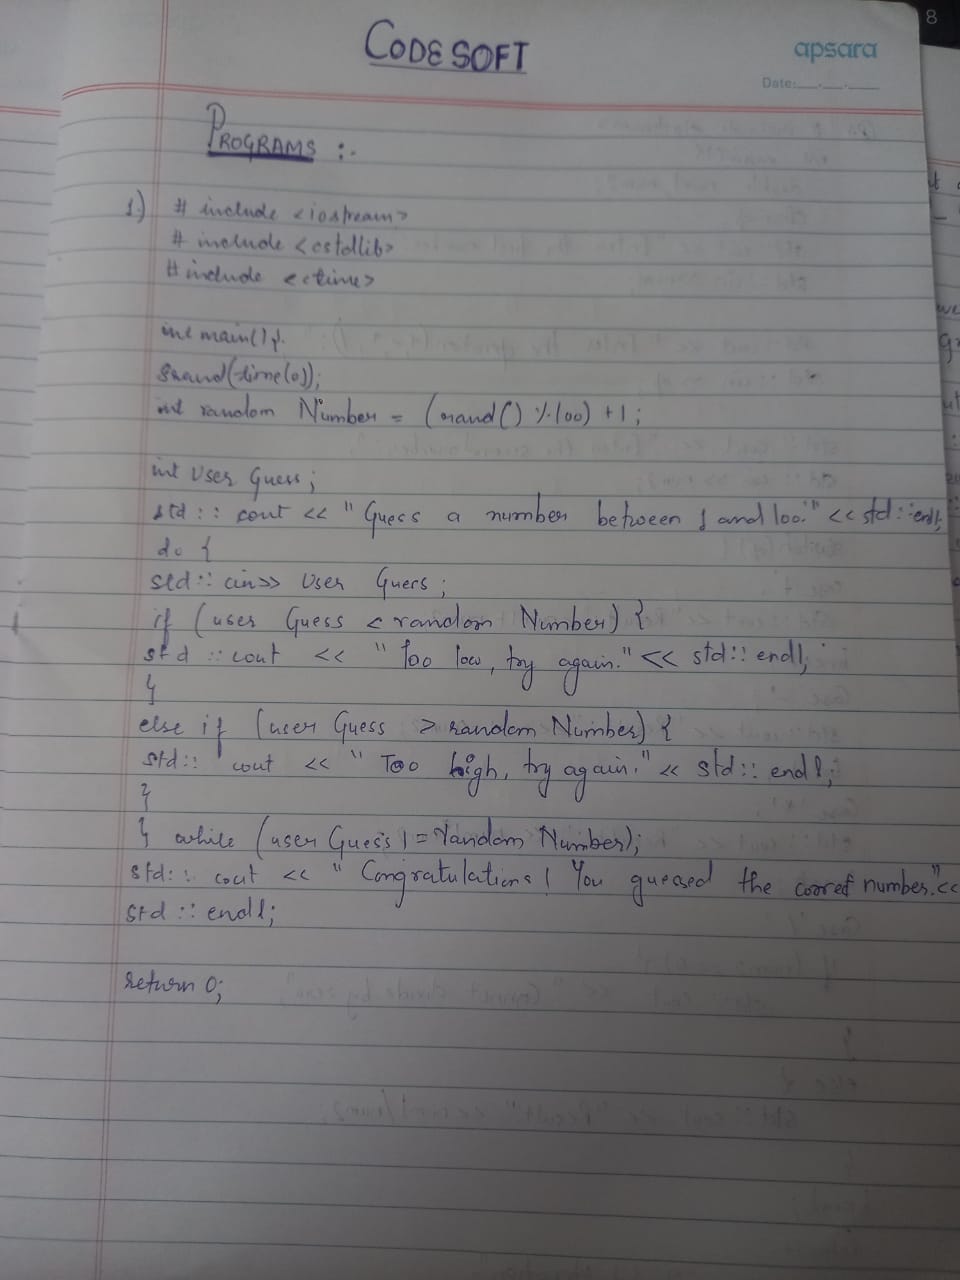 8
CODESOFT
apsara
Date:__.__.__
PROGRAMS :-
1.) # include <iostream>
# include <cstdlib>
# include <ctime>
int main() {
srand(time(0));
int random Number = (rand() % 100) + 1;
int User Guess;
std :: cout << " Guess a number between 1 and 100." << std :: endl;
do {
std :: cin >> User Guess;
if (user Guess < random Number) {
std :: cout << " Too low, try again." << std :: endl;
}
else if (user Guess > random Number) {
std :: cout << " Too high, try again." << std :: endl;
}
} while (user Guess != random Number);
std :: cout << " Congratulations! You guessed the correct number." <<
std :: endl;
return 0;